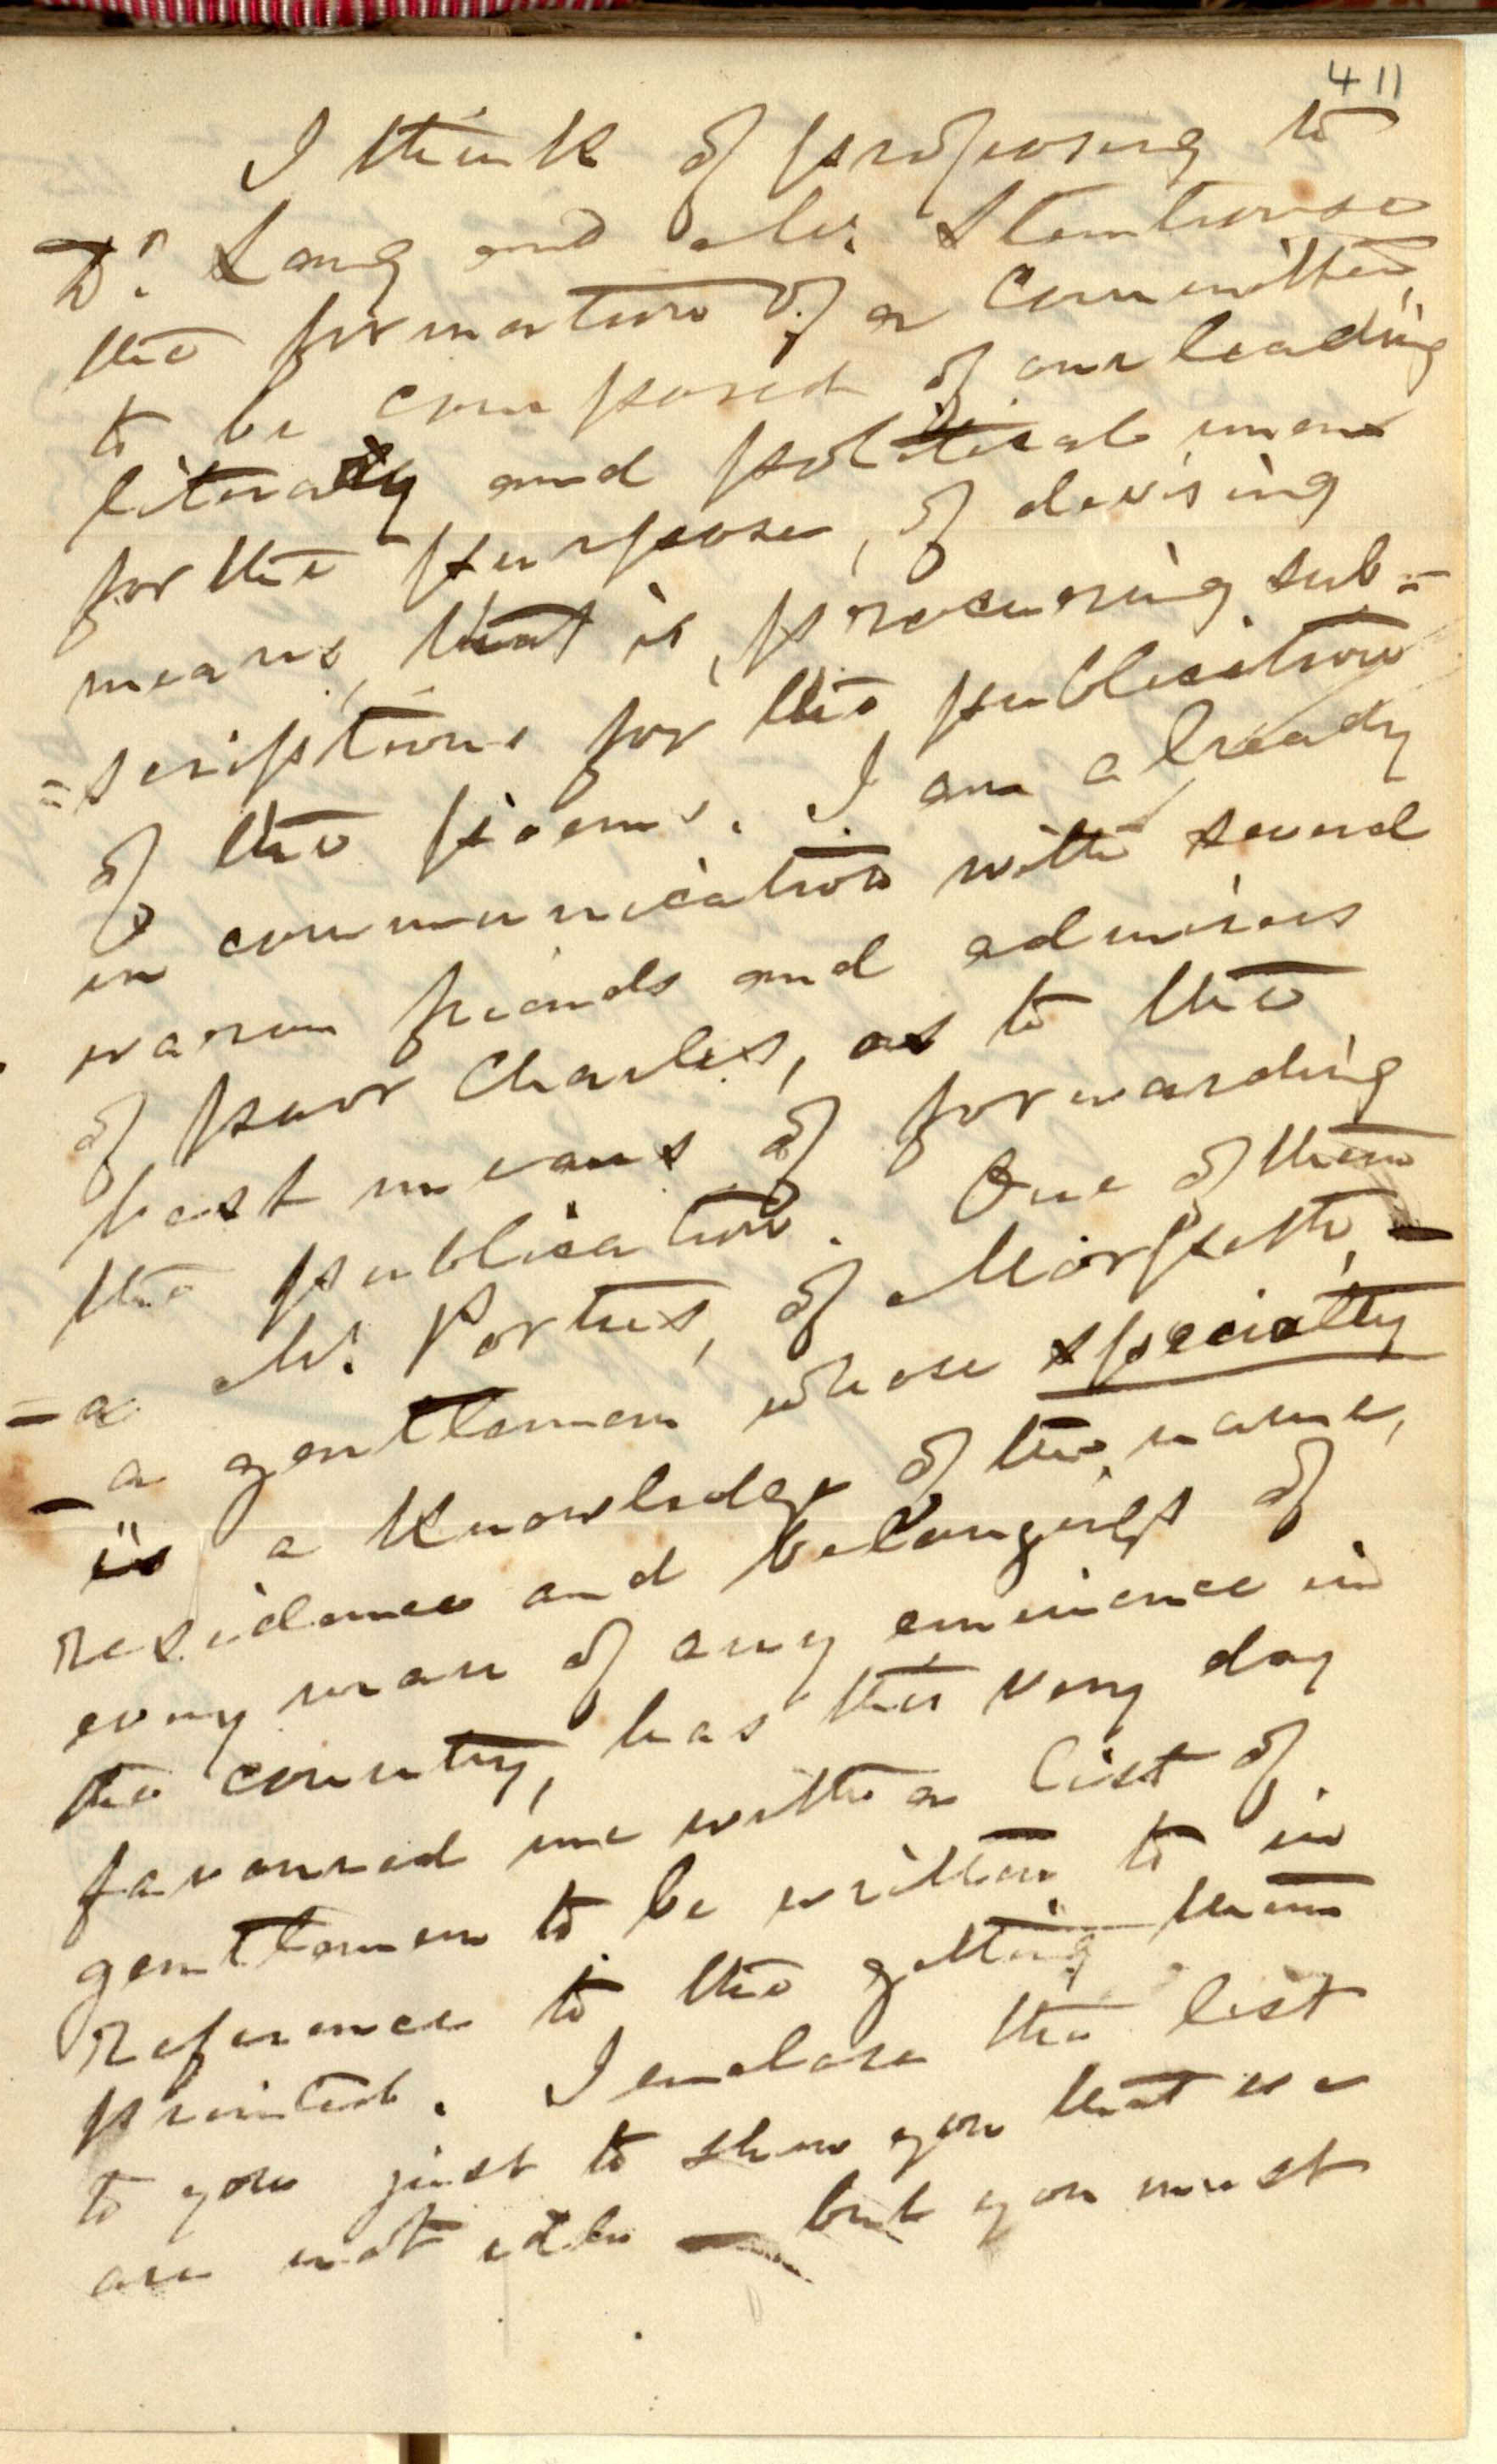 411
I think of proposing to
Dr. Lang and Mr. Stenhouse
the formation of a Committee,
to be composed of our leading
literary and political men
for the purpose, of devising
means, that is, procuring sub=
=scriptions for the publication
of the poems. I am already
in communication with several
warm friends and admirers
of poor Charles, as to the
best means of forwarding
the publication. One of them
—a Mr. Portus, of Morpeth, —
a gentleman whose specialty
— is a knowledge of the name,
residence and belongings of
every man of any eminence in
the country, has this very day
favoured me with a list of
gentlemen to be written to in
reference to the getting them
printed. I enclose the list
to you just to show you that we
are not idle — but you must